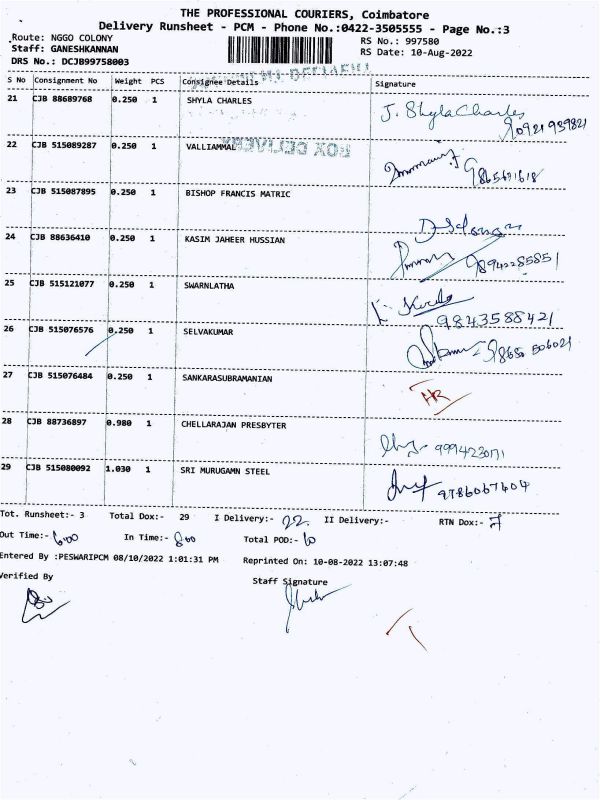 THE PROFESSIONAL COURIERS, Coimbatore
Delivery Runsheet - PCM - Phone No.:0422-3505555 - Page No.:3
Route: NGGO COLONY RS No.: 997580
Staff: GANESHKANNAN RS Date: 10-Aug-2022
DRS No.: DCJB99758003
S No Consignment No Weight PCS Consignee Details Signature
21 CJB 88689768 0.250 1 SHYLA CHARLES J. Shyla Charles
BOX DELIVERY
22 CJB 515089287 0.250 1 VALLIAMMAL
23 CJB 515087895 0.250 1 BISHOP FRANCIS MATRIC
24 CJB 88636410 0.250 1 KASIM JAHEER HUSSIAN
98942285851
25 CJB 515121077 0.250 1 SWARNLATHA
9843588421
26 CJB 515076576 0.250 1 SELVAKUMAR
27 CJB 515076484 0.250 1 SANKARASUBRAMANIAN
28 CJB 88736897 0.980 1 CHELLARAJAN PRESBYTER
29 CJB 515080092 1.030 1 SRI MURUGAMN STEEL
9786067404
Tot. Runsheet:- 3 Total Dox:- 29 I Delivery:- 22 II Delivery:- RTN Dox:- 7
Out Time:- 6.00 In Time:- 8.00 Total POD:- 6
Entered By :PESWARIPCM 08/10/2022 1:01:31 PM Reprinted On: 10-08-2022 13:07:48
Verified By Staff Signature